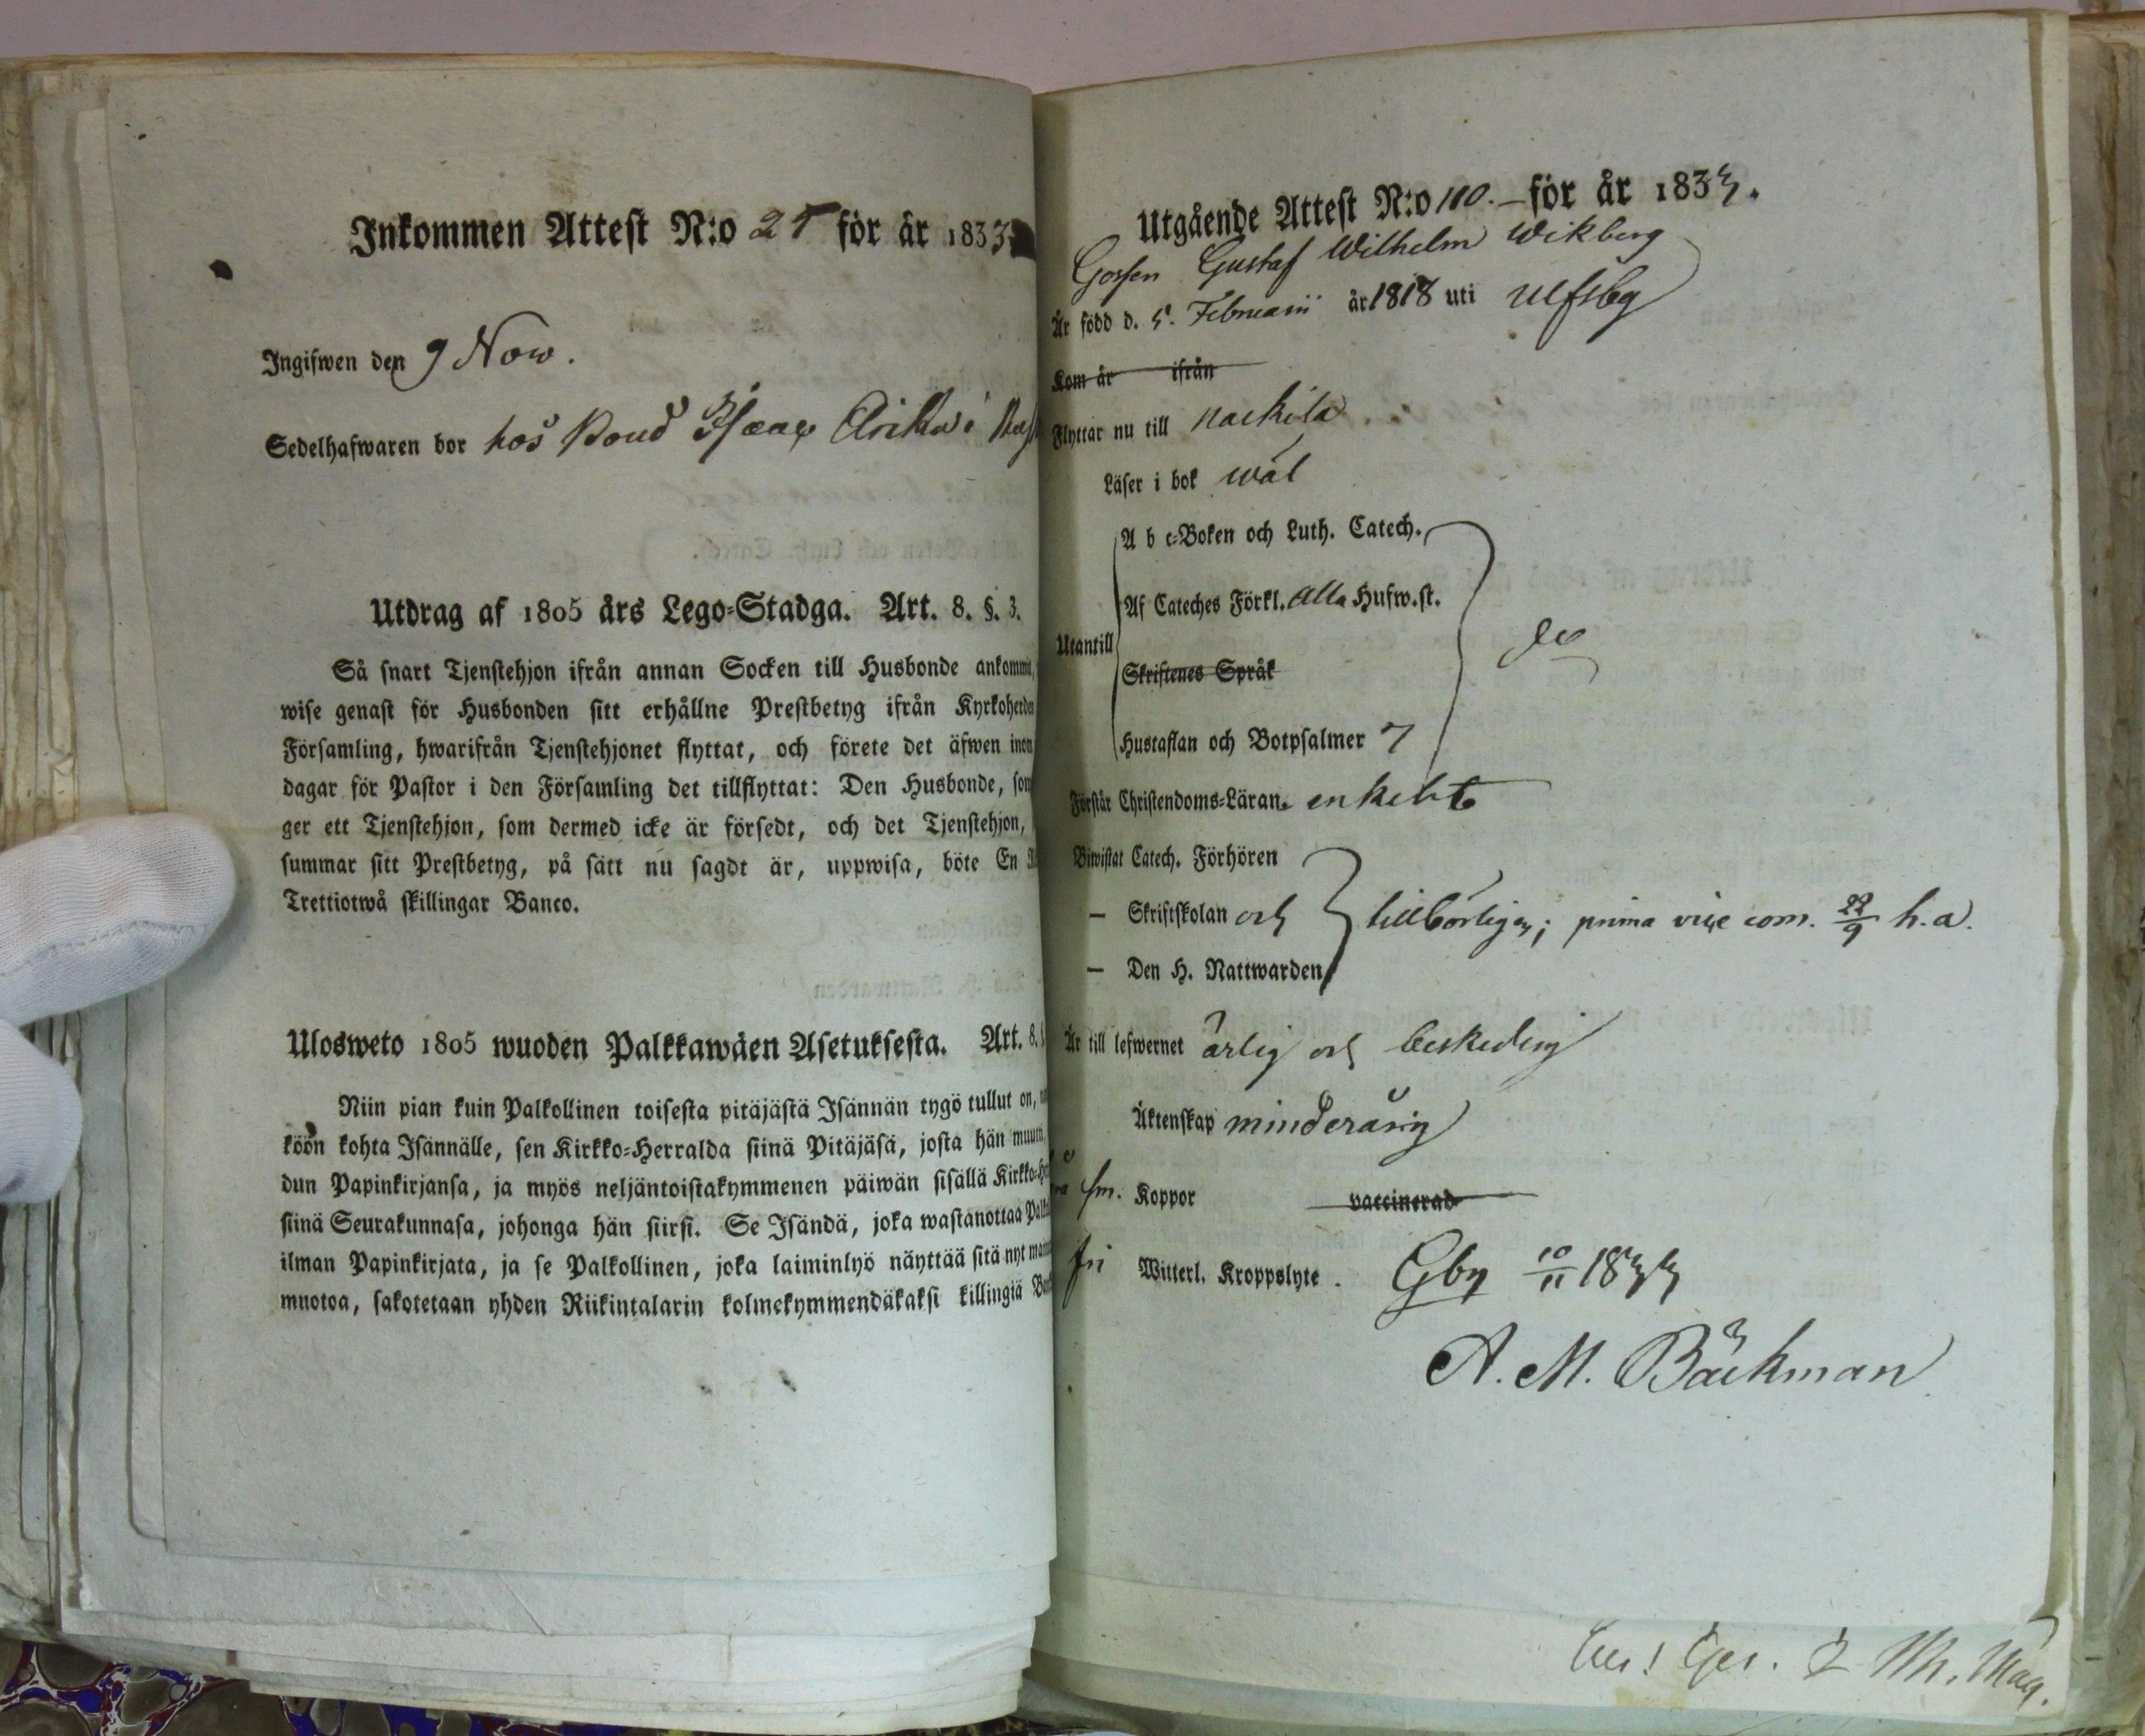 Inkommen Attest N:o 25 för år 1833.
Ingifwen den 9 Now.
Sedelhafwaren bor hos Bond Isaac
Utdrag af 1805 års Lego-Stadga. Art. 8. §. 3.
Så snart Tjenstehjon ifrån annan Socken till Husbonde ankommit,
wise genast för Husbonden sitt erhållne Prestbetyg ifrån Kyrkoherden
Församling, hwarifrån Tjenstehjonet flyttat, och förete det äfwen inom
dagar för Pastor i den Församling det tillflyttat: Den Husbonde, som
ger ett Tjenstehjon, som dermed icke är försedt, och det Tjenstehjon,
summar sitt Prestbetyg, på sätt nu sagdt är, uppwisa, böte En
Trettiotwå skillingar Banco.
Ulosweto 1805 wuoden Palkkawäen Asetuksesta. Art. 8.
Niin pian kuin Palkollinen toisesta pitäjästä Isännän tygö tullut on,
köön kohta Isännälle, sen Kirkko-Herralda siinä Pitäjäsä, josta hän muut
dun Papinkirjansa, ja myös neljäntoistakymmenen päiwän sisällä Kirkko-
siinä Seurakunnasa, johonga hän siirsi. Se Isändä, joka wastanottaa
ilman Papinkirjata, ja se Palkollinen, joka laiminlyö näyttää sitä nyt
muotoa, sakotetaan yhden Riikintalarin kolmekymmendäkaksi killingiä
Utgående Attest N:o 110. för år 1833.
Gossen Gustaf Wilhelm Wikberg
Är född d. 5. Februarii år 1818 uti Ulfsby
Kom år ifrån
Flyttar nu till Nackila
Läser i bok wäl
A b c-Boken och Luth. Catech.
Af Cateches Förkl. alla Hufw.st.
Utantill
Skriftenes Språk
Hustaflan och Botpsalmer 7
Förstår Christendoms-Läran enkelt
Biwistat Catech. Förhören
— Skriftskolan och tillbörligen; prima vice com. 22/9 h.a.
— Den H. Nattwarden
Är till lefwernet ärlig och beskedlig
Äktenskap minderårig
Koppor vaccinerad
fri Witterl. Kroppslyte. Gby 10/11 1833
A. M. Bäckman